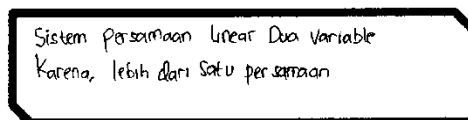 Sistem Persamaan Linear Dua Variable
Karena, lebih dari satu persamaan